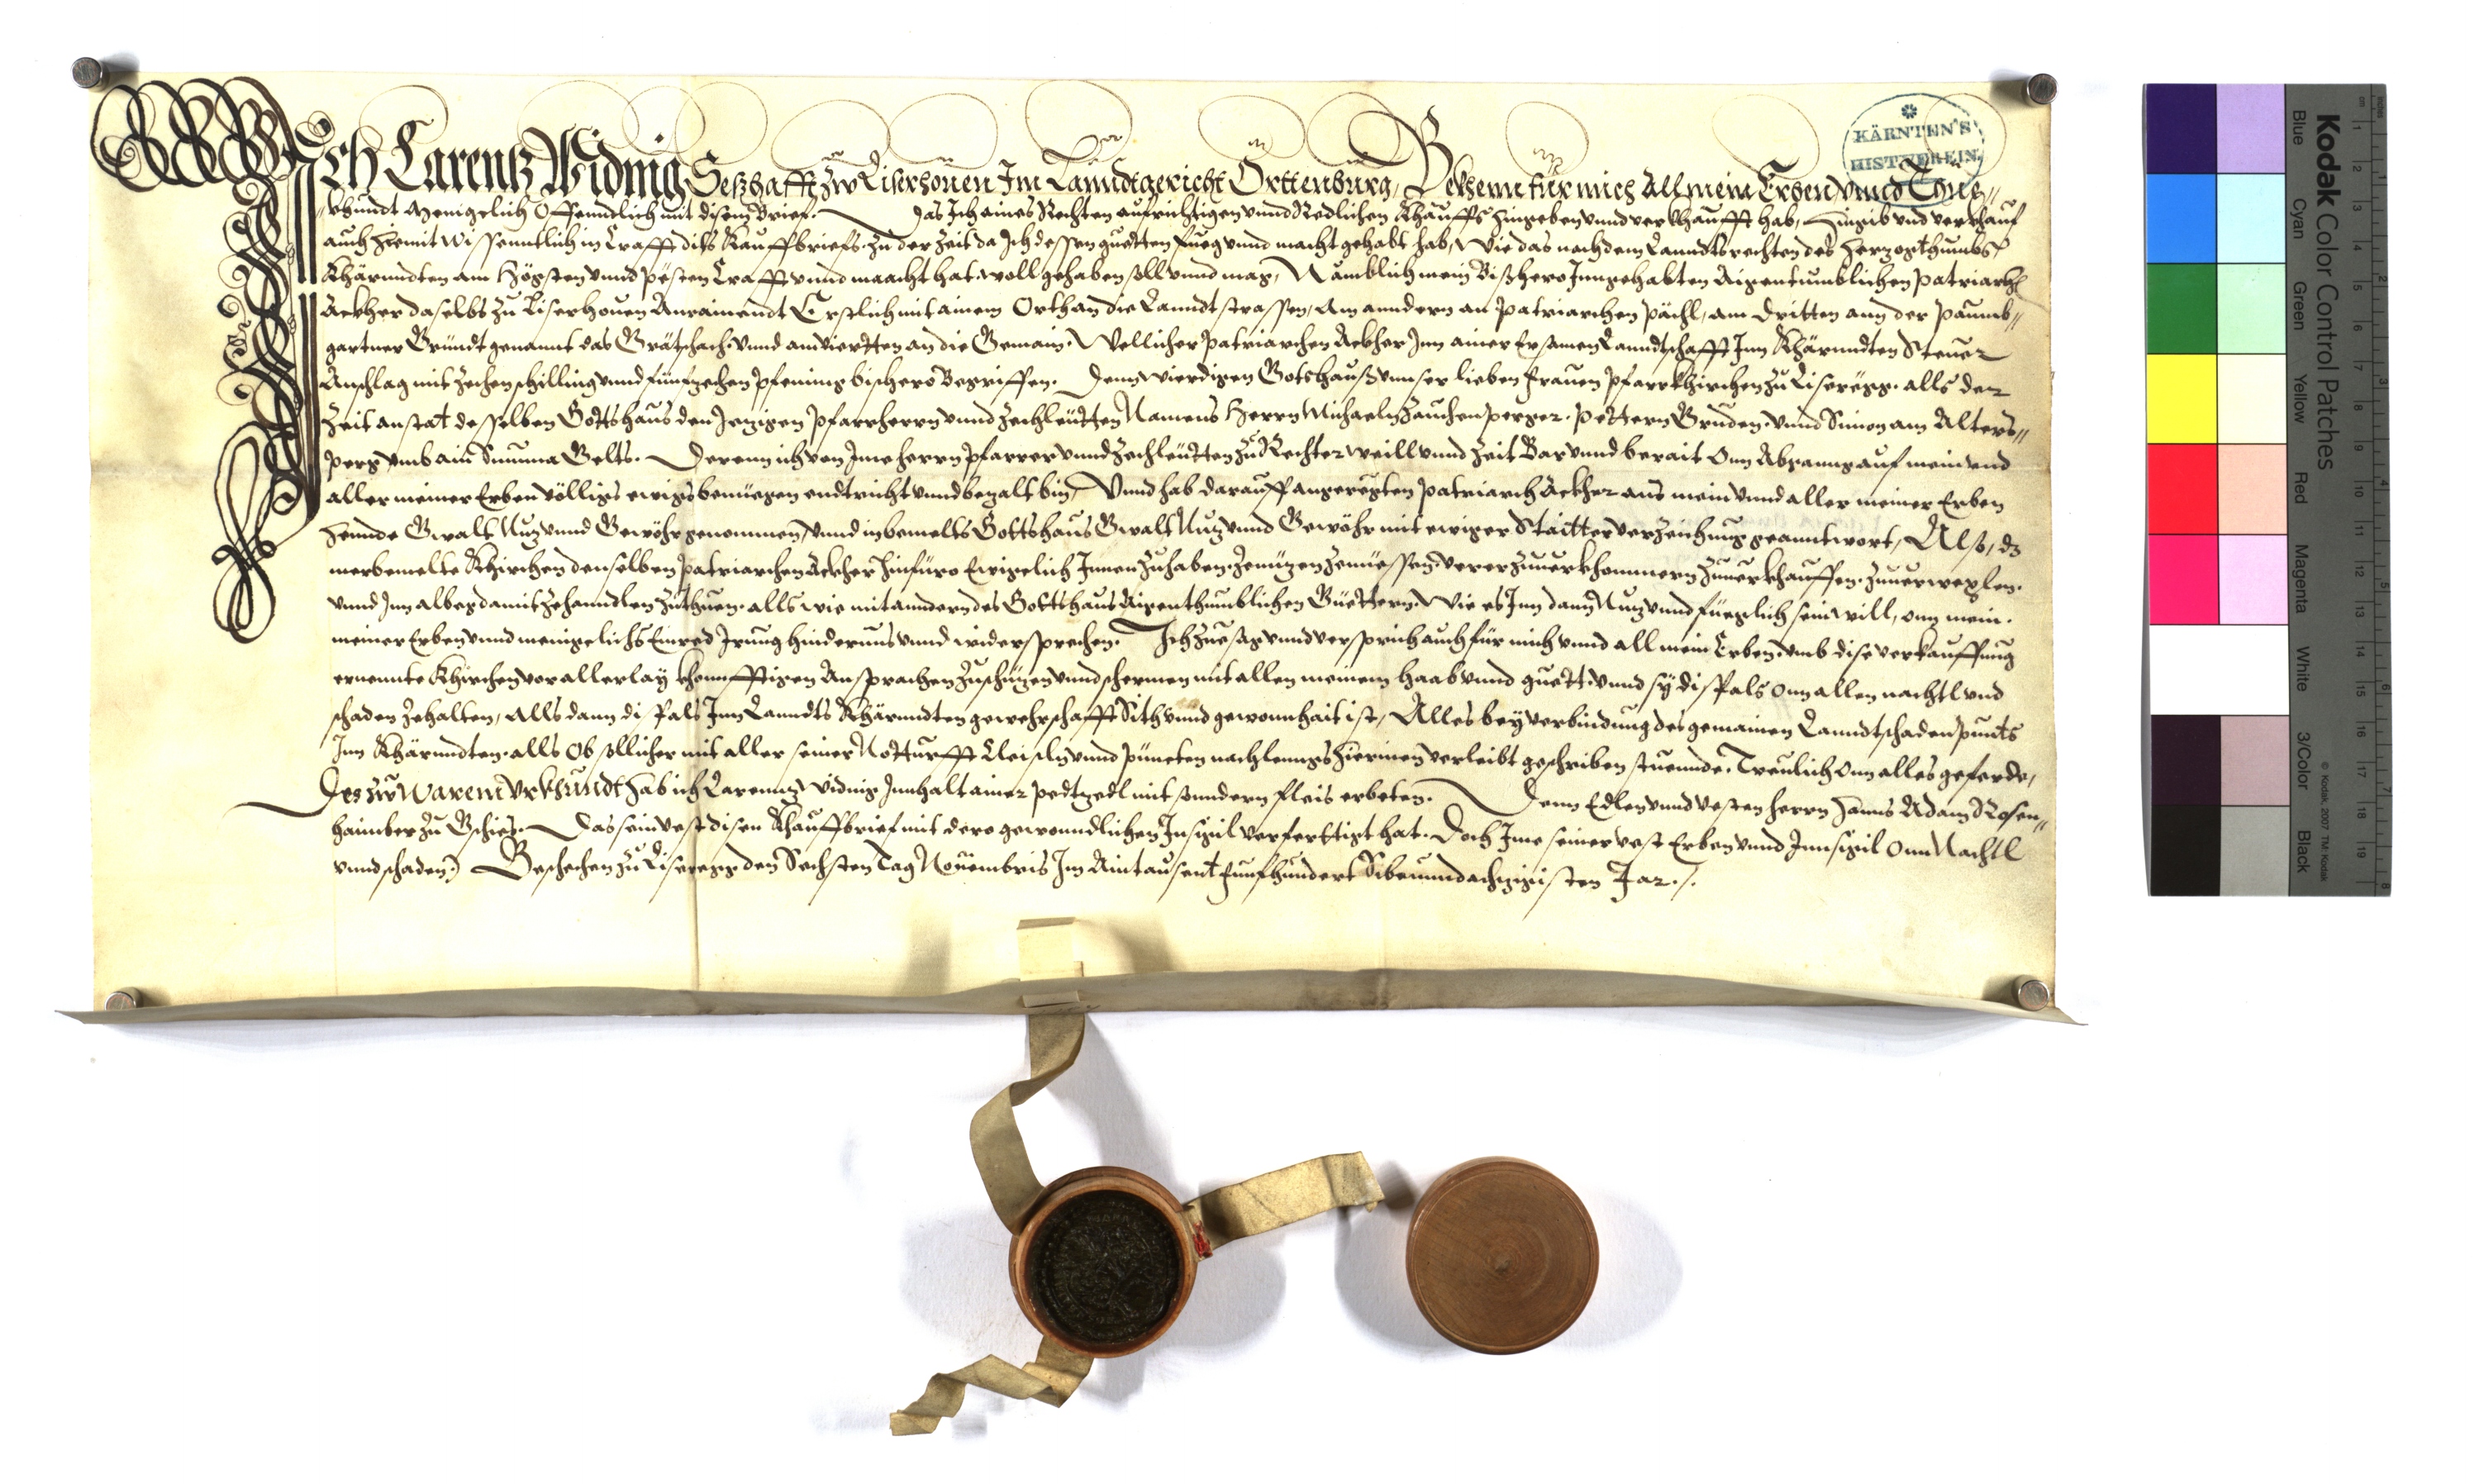 Ich Larentz Widnig Seßhafft zw Liserhouen Im Lanndtgericht Orttenburg, Bekhenn für mich All mein Erben vnnd Thue
KÄRNTEN'S
HIST. VEREIN
khundt Menigclich Offenndlich mit disem Brief. Das Ich aines Rechten aufrichtigen vnnd Redlichen Khauffs hingeben vnnd verkhaufft hab, Hingib vnd verkhauf
auch hiemit wissenntlich in Crafft diss Kauffbriefs. zu der Zeit da Ich dessen guetten fueg vnnd macht gehabt hab, Wie das nach dem Lanndtsrechten des Herzogthumbs
Khärnndten am Högsten vnnd pesten Crafft vnnd maacht hat woll gehaben soll vnnd mag, Nämblich mein Bißhero Inngehabten Aigentumblichen Patriarch
Ackher daselbs zu Liserhouen Anrainendt Erstlich mit ainem Orth an die Lanndtstrassen, Am anndern an Patriarchen pächl, am dritten ann der Paumb
gartner Gründt genannt das Grätschach. vnnd am viertten an die Gemain. Wellicher Patriarchen Ackher Inn ainer Ersamen Lanndtschafft Inn Khärnndten Steuer
Anschlag mit Zechen schilling vnnd fünfzechen pfening bishero Begriffen. Denn wierdigen Gotshauß vnnser lieben frauen Pfarrkhirchen zu Liseregg. alls der
Zeit anstat desselben Gottshaus den Jezigen Pfarrherrn vnnd Zechleütten Namens Herrn Michaeln Zauchenperger. Pettern Gruden. vnnd Simon am Alters
perg vmb ain Summa Gelts. Deren ich von Ime herrn Pfarrer vnnd Zechleütten zu Rechter weill vnnd Zeit Bar vnnd berait Onn Abganng auf mein vnd
aller meiner Erben völligs ewigs benüegen endtricht vnnd bezalt bin, Vnnd hab darauff angeregten Patriarch Ackher aus mein vnnd aller meiner Erben
Hennde Gwalt Nuz vnnd Gewöhr genommen, vnnd in bemelts Gottshaus Gwalt Nuz vnnd Gewöhr mit ewiger Stäitter verzeichnung geanntwort, Also, dz
merbemelte Khirchen denselben Patriarchen Ackher hinfüro Ewigclich Innen zuhaben. Zenuzen Zenüessen. zuuerkhommern zuuerkhauffen. zuuerwexlen.
vnnd Inn albeg damit zehanndlen zuthuen. alls wie mit anndern des Gottshaus Aigenthumblichen Güettern. Wie es Inn dann Nuz vnnd füeglich sein will, onn mein.
meiner Erben vnnd menigclichs Einred Irrung hinderung vnnd widersprechen. Ich zuesag vnnd versprich auch für mich vnnd all mein Erben. vmb dise verkauffung
ernennte Khirchen vor allerlay khonnfftigen Ansprachen zuschüzen vnnd schermen mit allen meinem haab vnnd guett. vnnd sy diß fals onn allen nachtl vnd
schaden zehalten, Alls dann diß fals Inn Lanndts Khärnndten gewehrschafft Sith vnnd gewonnhait ist, Alles bey verbindung des gemainen Lanndtschadenpunts
Inn Khärnndten. alls ob sollicher mit aller seiner Notturfft Cleiseln vnnd puncten nach lenngs hierinnen verleibt geschriben stuennde. Treulich onn alles geferde,
Des zw Warem Vrkhundt hab ich Larennz Widnig Innhalt ainer pedtzedl mit sonndern fleis erbeten. Denn Edlen vnnd vesten herrn Hanns Adam Rosen
haimber zu Gschies. Das sein vest disen Khauffbrief mit dero gewonndlichen Insigil verferttigt hat. Doch Ime seiner vest Erben vnnd Innsigil onn Nachtl
vnnd schaden. Geschechen zu Liseregg den Sechsten Tag Nouembris Im Aintausent Funfhundert Sibenundachzigisten Jar.
Kodak Color Control Patches
Blue Cyan Green Yellow Red Magenta White 3/Color Black
© Kodak, 2007 TM: Kodak